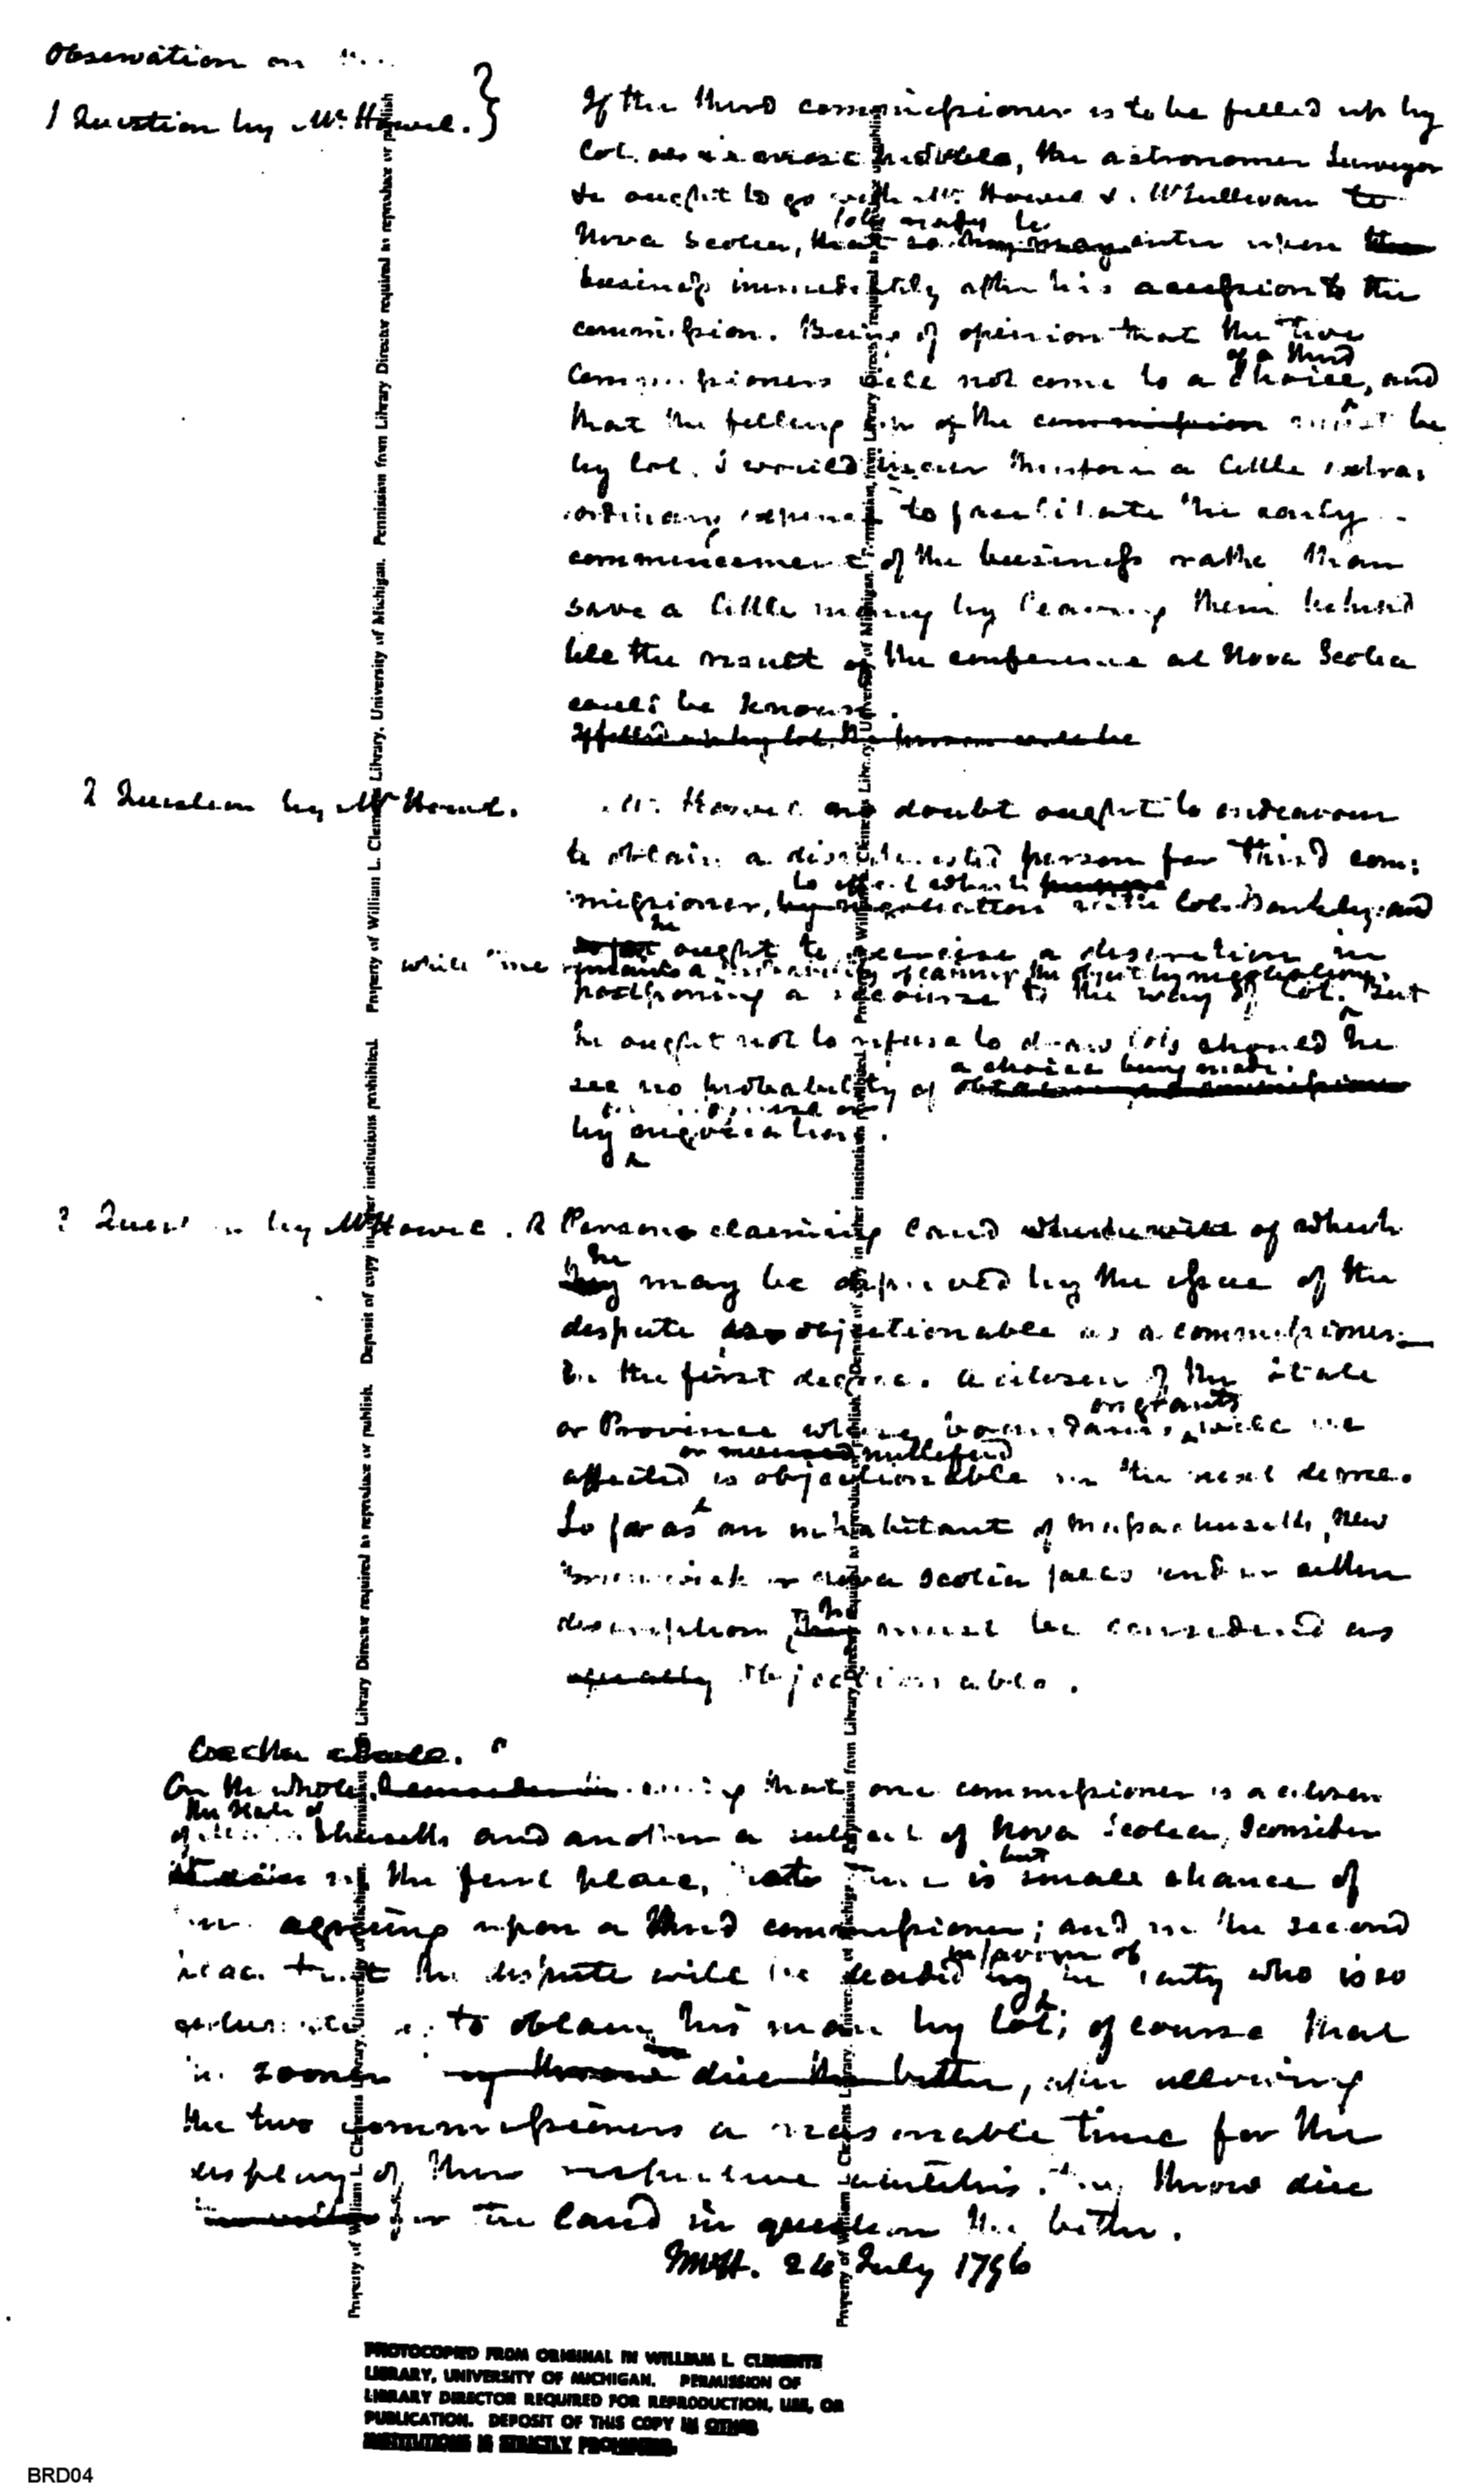 Observation on
1 Question by Mr. Howel. }
If the third commissioner is to be filled up by
lot, the astronomer Surveyor
&c ought to go with Mr. Howel & Mr Sullivan to
to be ready to
Nova Scotia, that so they may enter upon the
business immediately after his accession to the
commission. Being of opinion that the two
of a third
Commissioners will not come to a choice, and
that the filling up of the commission must be
by lot. I would incur therefore a little extra:
ordinary expence to facilitate the early
commencement of the business rathe than
save a little money by leaving them behind
till the result of the conference at Nova Scotia
could be known.
If filled up by lot, the
2 Question by Mr Howel.
Mr. Howel no doubt ought to endeavour
to obtain a disinterested person for third com:
to effect which purpose
missioner, by negociation with Col. Barkley: and
he
ought to exercise a discretion in
while there remains a of carrying the object by negotiation.
postponing a recourse to the way of lot. But
he ought not to refuse to draw lots should he
a choice being made.
see no probability of
by negociation.
3 Question by Mr Howel.
A Person claiming land of which
he
they may be deprived by the issue of the
dispute is objectionable as a commissioner
in the first degree. A citizen of the State
or grants
or Province whose boundaries will be
or nullified
affected is objectionable in the next degree.
So far as an inhabitant of Massachusetts, New
Brunswick or Nova Scotia falls under either
he
description, they must be considered as
equally objectionable.
On the whole, that one commissioner is a citizen
the State of
of Massachusetts and another a subject of Nova Scotia, I consider
but
in the first place, there is small chance of
agreeing upon a third commissioner; and in the second
in favour of
place that the dispute will be decided by the party who is so
fortunate as to obtain his man by lot; of course that
the sooner they throw dice the better, after allowing
the two commissioners a reasonable time for the
display of their respective abilities. They throw dice
for the land in question the better.
26 July 1796
Property of William L. Clements Library, University of Michigan. Permission from Library Director required to reproduce or publish. Deposit of copy in other institutions prohibited.
Property of William L. Clements Library, University of Michigan. Permission from Library Director required to reproduce or publish
Property of William L. Clements Library, University of Michigan. Permission from Library Director required to reproduce or publish. Deposit of copy in other institutions prohibited.
Property of William L. Clements Library, University of Michigan. Permission from Library Director required to reproduce or publish
PHOTOCOPIED FROM ORIGINAL IN WILLIAM L. CLEMENTS
LIBRARY, UNIVERSITY OF MICHIGAN. PERMISSION OF
LIBRARY DIRECTOR REQUIRED FOR REPRODUCTION, USE, OR
PUBLICATION. DEPOSIT OF THIS COPY IN OTHER
INSTITUTIONS IS STRICTLY PROHIBITED.
BRD04